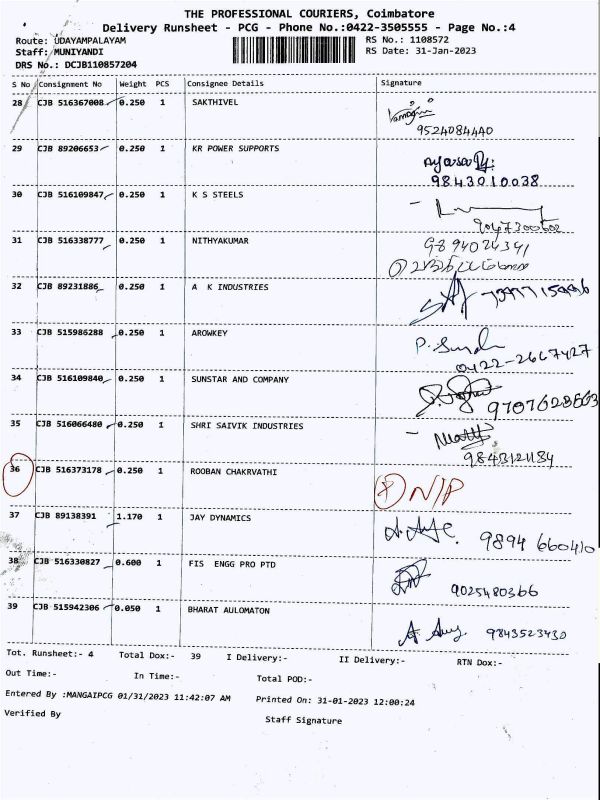 THE PROFESSIONAL COURIERS, Coimbatore
Delivery Runsheet - PCG - Phone No.:0422-3505555 - Page No.:4
Route: UDAYAMPALAYAM RS No.: 1108572
Staff: MUNIYANDI RS Date: 31-Jan-2023
DRS No.: DCJB110857204
S No Consignment No Weight PCS Consignee Details Signature
28 CJB 516367008 0.250 1 SAKTHIVEL
9524084440
29 CJB 89206653 0.250 1 KR POWER SUPPORTS
9843010038
30 CJB 516109847 0.250 1 K S STEELS
9047300602
31 CJB 516338777 0.250 1 NITHYAKUMAR 9894024341
32 CJB 89231886 0.250 1 A K INDUSTRIES
33 CJB 515986288 0.250 1 AROWKEY
0422-2667427
34 CJB 516109840 0.250 1 SUNSTAR AND COMPANY
35 CJB 516066480 0.250 1 SHRI SAIVIK INDUSTRIES
9843121184
36 CJB 516373178 0.250 1 ROOBAN CHAKRVATHI N/P
37 CJB 89138391 1.170 1 JAY DYNAMICS
9894 660410
38 CJB 516330827 0.600 1 FIS ENGG PRO PTD
9025480366
39 CJB 515942306 0.050 1 BHARAT AULOMATON
9843523430
Tot. Runsheet:- 4 Total Dox:- 39 I Delivery:- II Delivery:- RTN Dox:-
Out Time:- In Time:- Total POD:-
Entered By :MANGAIPCG 01/31/2023 11:42:07 AM Printed On: 31-01-2023 12:00:24
Verified By Staff Signature